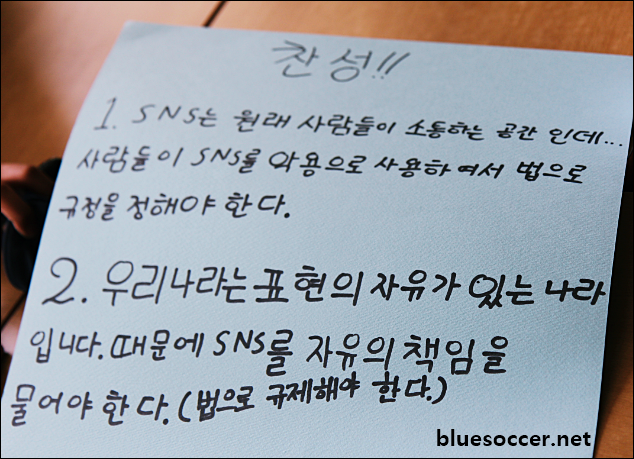 찬성!!
1. SNS는 원래 사람들이 소통하는 공간 인데...
사람들이 SNS를 악용으로 사용하여서 법으로
규정을 정해야 한다.
2. 우리나라는 표현의 자유가 있는 나라
입니다. 때문에 SNS를 자유의 책임을
물어야 한다. (법으로 규제해야 한다.)
bluesoccer.net